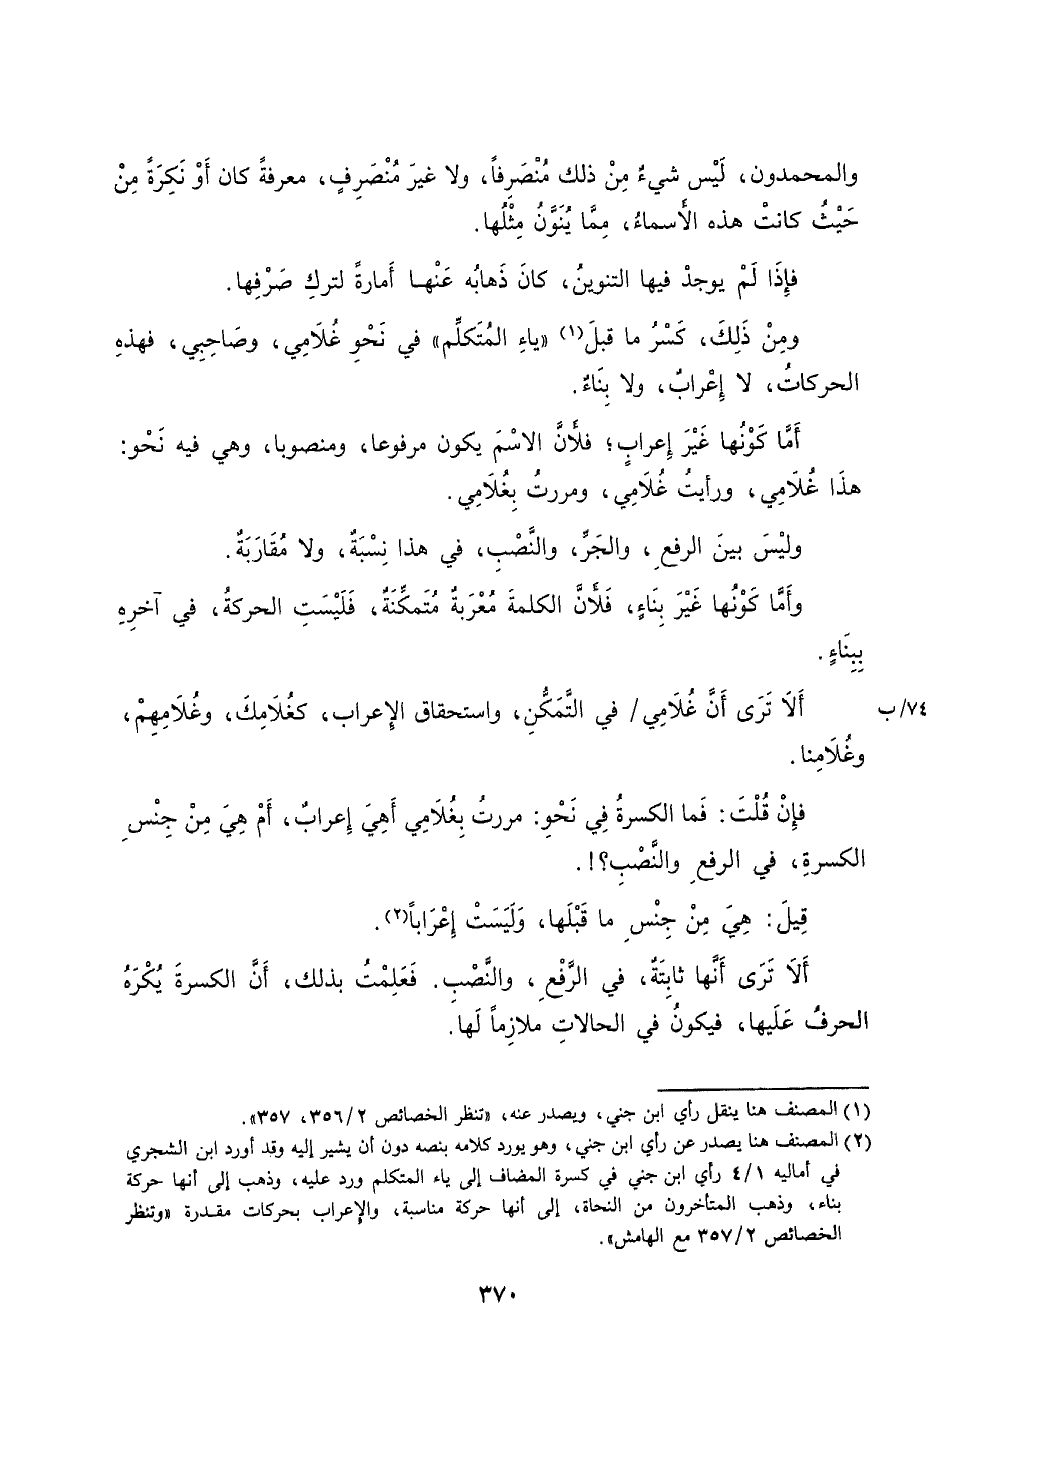 والمحمدون، لَيْس شيءٌ مِنْ ذلك مُنْصَرِفاً، ولا غيرَ مُنْصَرِفٍ، معرفةً كان أَوْ نَكِرَةً مِنْ
حَيْثُ كانتْ هذه الأَسماءُ، مِمَّا يُنَوَّنُ مِثْلُها.
فإِذَا لَمْ يوجدْ فيها التنوينُ، كانَ ذَهابُه عَنْهـا أَمارةً لتركِ صَرْفِها.
ومِنْ ذَلِكَ، كَسْرُ ما قبلَ(١) «ياءِ المُتَكلِّم» في نَحْوِ غُلَامِي، وصَاحِبِي، فهذهِ
الحركاتُ، لا إِعْرابٌ، ولا بِنَاءٌ.
أَمَّا كَوْنُها غَيْرَ إِعرابٍ؛ فلأَنَّ الاسْمَ يكون مرفوعا، ومنصوبا، وهي فيه نَحْو:
هذَا غُلَامِي، ورأيتُ غُلَامِي، ومررتُ بِغُلَامِي.
وليْسَ بينَ الرفعِ، والجَرِّ، والنَّصْبِ، في هذا نِسْبَةٌ، ولا مُقَارَبَةٌ.
وأَمَّا كَوْنُها غَيْرَ بِنَاءٍ، فَلأَنَّ الكلمةَ مُعْرَبَةٌ مُتَمكِّنَةٌ، فَلَيْسَتِ الحركةُ، في آخرِهِ
بِبِنَاءٍ.
٧٤/ب أَلَا تَرَى أَنَّ غُلَامِي/ في التَّمَكُّنِ، واستحقاق الإِعراب، كغُلَامِكَ، وغُلَامِهِمْ،
وغُلَامِنا.
فإِنْ قُلْتَ: فَما الكسرةُ فِي نَحْوِ: مررتُ بِغُلَامِي أَهِيَ إِعرابٌ، أَمْ هِيَ مِنْ جِنْسِ
الكسرةِ، في الرفعِ والنَّصْبِ؟!.
قِيلَ: هِيَ مِنْ جِنْسِ ما قَبْلَها، وَلَيَسَتْ إِعْرَاباً(٢).
أَلَا تَرَى أَنَّها ثابِتَةٌ، في الرَّفْعِ، والنَّصْبِ. فَعَلِمْتُ بذلك، أَنَّ الكسرةَ يُكْرَهُ
الحرفُ عَلَيها، فيكونُ في الحالاتِ ملازِماً لَها.
(١) المصنف هنا ينقل رأي ابن جني، ويصدر عنه، «تنظر الخصائص ٣٥٦/٢، ٣٥٧».
(٢) المصنف هنا يصدر عن رأي ابن جني، وهو يورد كلامه بنصه دون أن يشير إليه وقد أورد ابن الشجري
في أماليه ٤/١ رأي ابن جني في كسرة المضاف إلى ياء المتكلم ورد عليه، وذهب إلى أنها حركة
بناء، وذهب المتأخرون من النحاة، إلى أنها حركة مناسبة، والإعراب بحركات مقدرة «وتنظر
الخصائص ٣٥٧/٢ مع الهامش».
٣٧٠